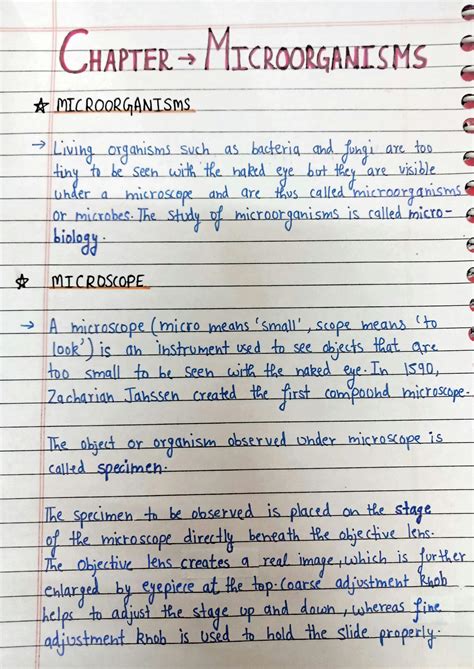 CHAPTER → MICROORGANISMS
☆ MICROORGANISMS
→ Living organisms such as bacteria and fungi are too
tiny to be seen with the naked eye but they are visible
under a microscope and are thus called microorganisms
or microbes. The study of microorganisms is called micro-
biology.
☆ MICROSCOPE
→ A microscope (micro means 'small', scope means 'to
look') is an instrument used to see objects that are
too small to be seen with the naked eye. In 1590,
Zacharian Janssen created the first compound microscope.
The object or organism observed under microscope is
called specimen.
The specimen to be observed is placed on the stage
of the microscope directly beneath the objective lens.
The objective lens creates a real image, which is further
enlarged by eyepiece at the top. Coarse adjustment knob
helps to adjust the stage up and down, whereas fine
adjustment knob is used to hold the slide properly.